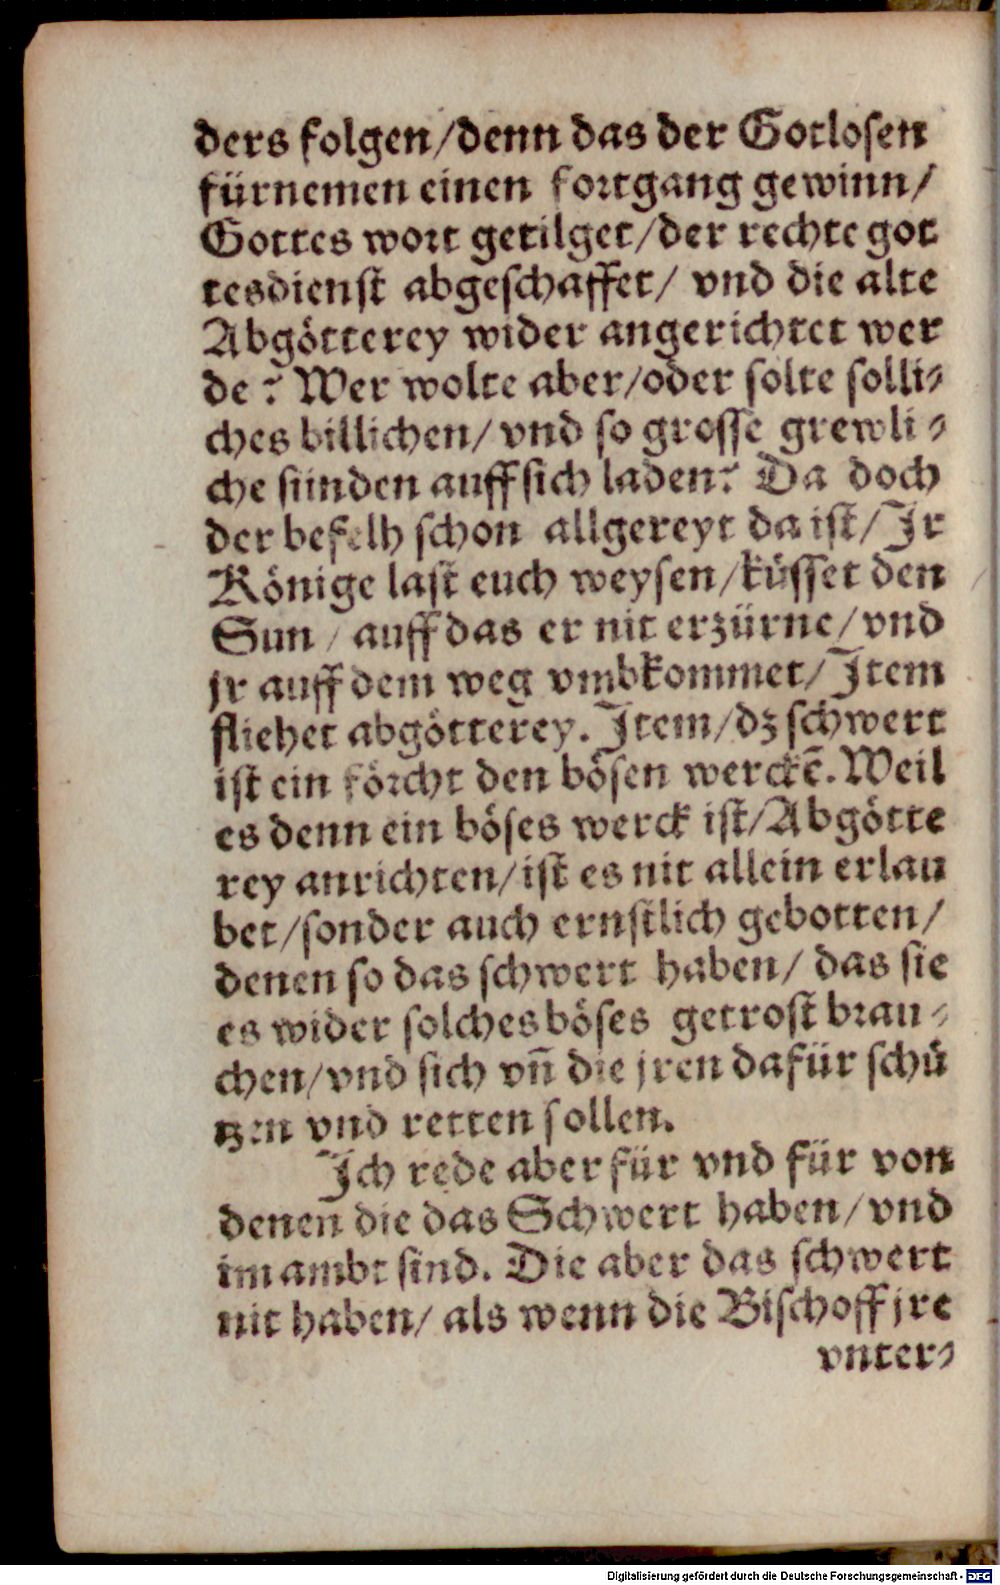 ders folgen/denn das der Gotlosen
fürnemen einen fortgang gewinn/
Gottes wort getilget/der rechte got
tesdienst abgeschaffet/ vnd die alte
Abgötterey wider angerichtet wer
de? Wer wolte aber/oder solte solli⸗
ches billichen/ vnd so grosse grewli⸗
che sünden auff sich laden? Da doch
der befelh schon allgereyt da ist/ Jr
Könige last euch weysen/küsset den
Sun/ auff das er nit erzürne/ vnd
jr auff dem weg vmbkommet/ Jtem
fliehet abgötterey. Jtem/dz schwert
ist ein förcht den bösen werckē. Weil
es denn ein böses werck ist/Abgötte
rey anrichten/ist es nit allein erlau
bet/sonder auch ernstlich gebotten/
denen so das schwert haben/ das sie
es wider solches böses getrost brau⸗
chen/vnd sich vñ die jren dafür schü
tzen vnd retten sollen.
Jch rede aber für vnd für von
denen die das Schwert haben/vnd
im ambt sind. Die aber das schwert
nit haben/ als wenn die Bischoff jre
vnter⸗
Digitalisierung gefördert durch die Deutsche Forschungsgemeinschaft - DFG